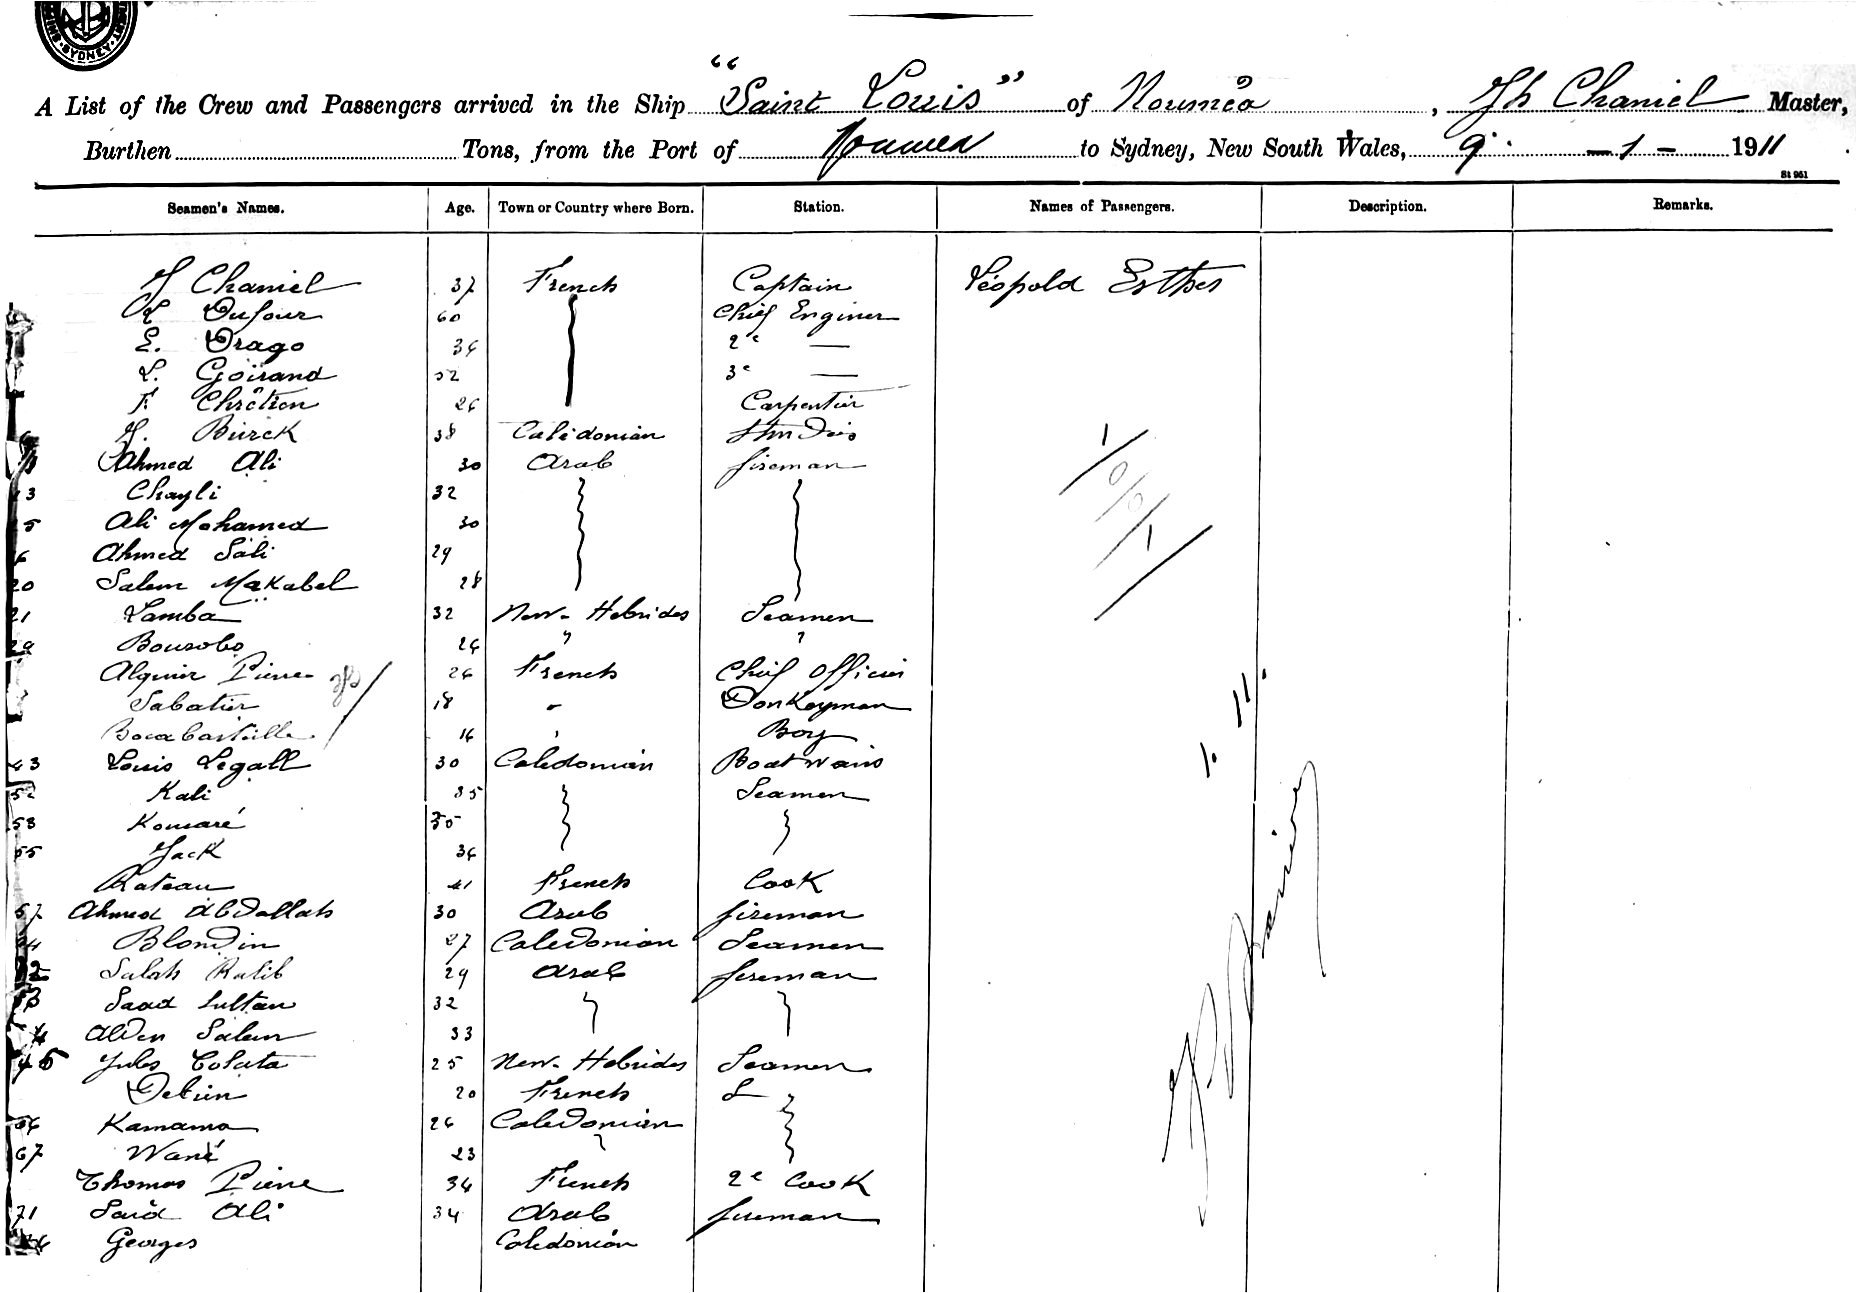 SYDNEY
A List of the Crew and Passengers arrived in the Ship "Saint Louis" of Nouméa, Jh Chaniel Master,
Burthen Tons, from the Port of Noumea to Sydney, New South Wales, 9 - 1 - 1911
St 951
Seamen's Names. Age. Town or Country where Born. Station. Names of Passengers. Description. Remarks.
J Chaniel 37 French Captain Léopold Esther
L Dufour 60 Chief Enginer
E. Drago 34 2e —
L. Goirand 52 3e —
F. Chrétien 26 Carpentier
J. Burck 38 Calédonian
Ahmed Ali 30 Arab fireman
13 Chayli 32
15 Ali Mohamed 30
16 Ahmed Sali 29
20 Salem Makabel 28
21 Lamba 32 New-Hebrides Seamen
29 Bourobo 24 " "
Alquier Pierre 26 French Chief Officier
Sabatier 18 " Donkeyman
16 " Boy
43 Louis Legall 30 Caledonian Boatwain
52 Kali 35 Seamen
53 Komaré
55 Jack 34
Rateau 41 French Cook
57 Ahmed Abdallah 30 Arab fireman
Blondin 27 Caledonian Seamen
Salah Katib 29 Arab fireman
Saad Sultan 32
Salem 33
Jules Colata 25 New-Hebrides Seamen
Debien 20 French
Kamama 26 Caledonian
67 Wané 23
Thomas Pierre 34 French 2e Cook
71 Said Ali 34 Arab fireman
Georges Caledonian
1/0/0/1